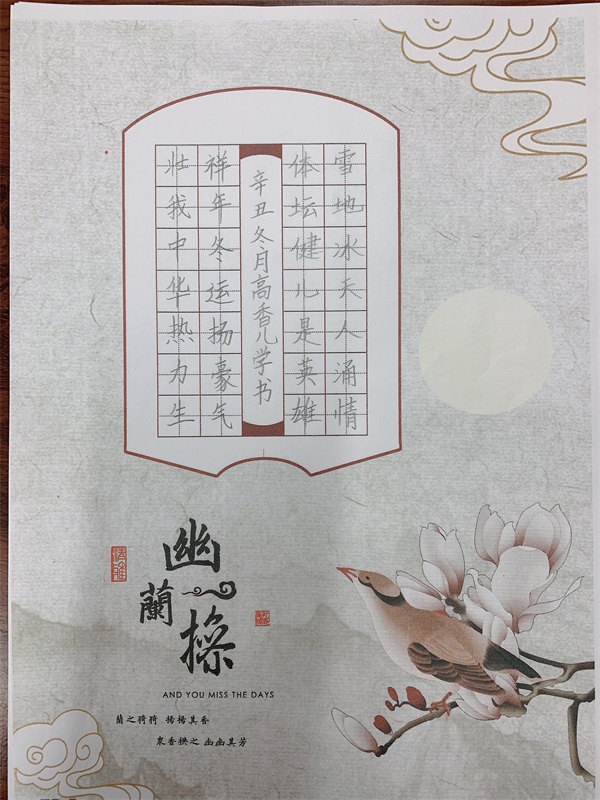 雪地冰天人涌情
体坛健儿是英雄
辛丑冬月高香儿学书
祥年冬运扬豪气
壮我中华热力生
幽蘭操
AND YOU MISS THE DAYS
蘭之猗猗 揚揚其香
衆香拱之 幽幽其芳